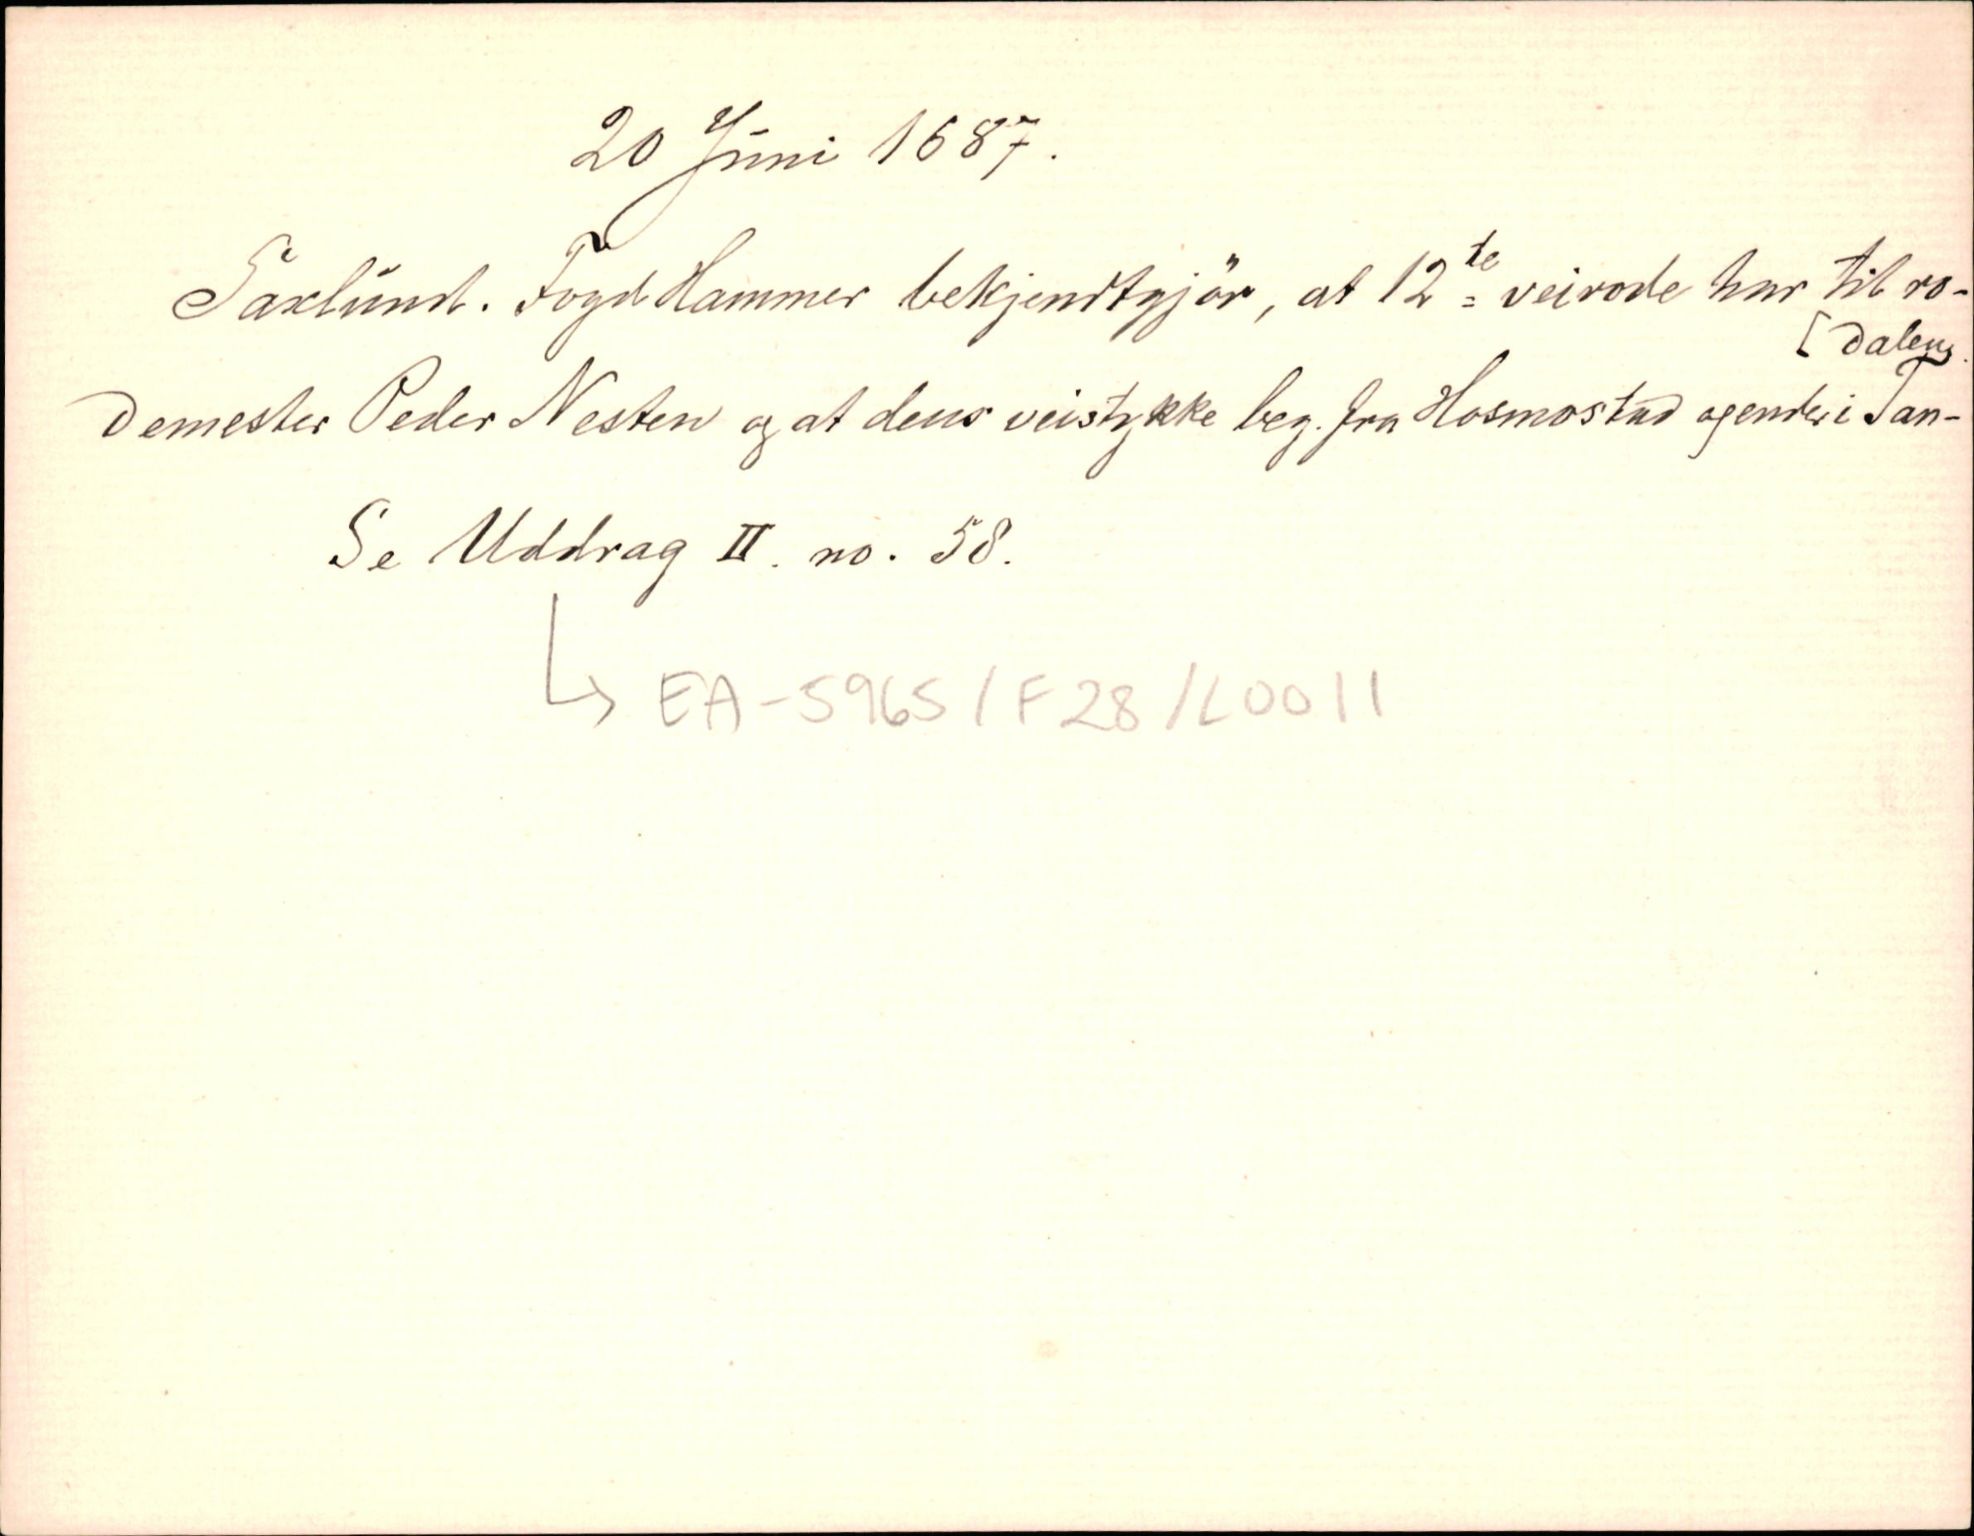 20 Juni 1687.
Saxlund. Fogd Hammer bekjendtgjör, at 12te veirode har til ro-
demester Peder Nesten og at dens veistykke beg. fra Hosmostad og ender i Tan-
[dalen.
Se Uddrag II. no. 58.
↳ EA-5965/F28/L0011